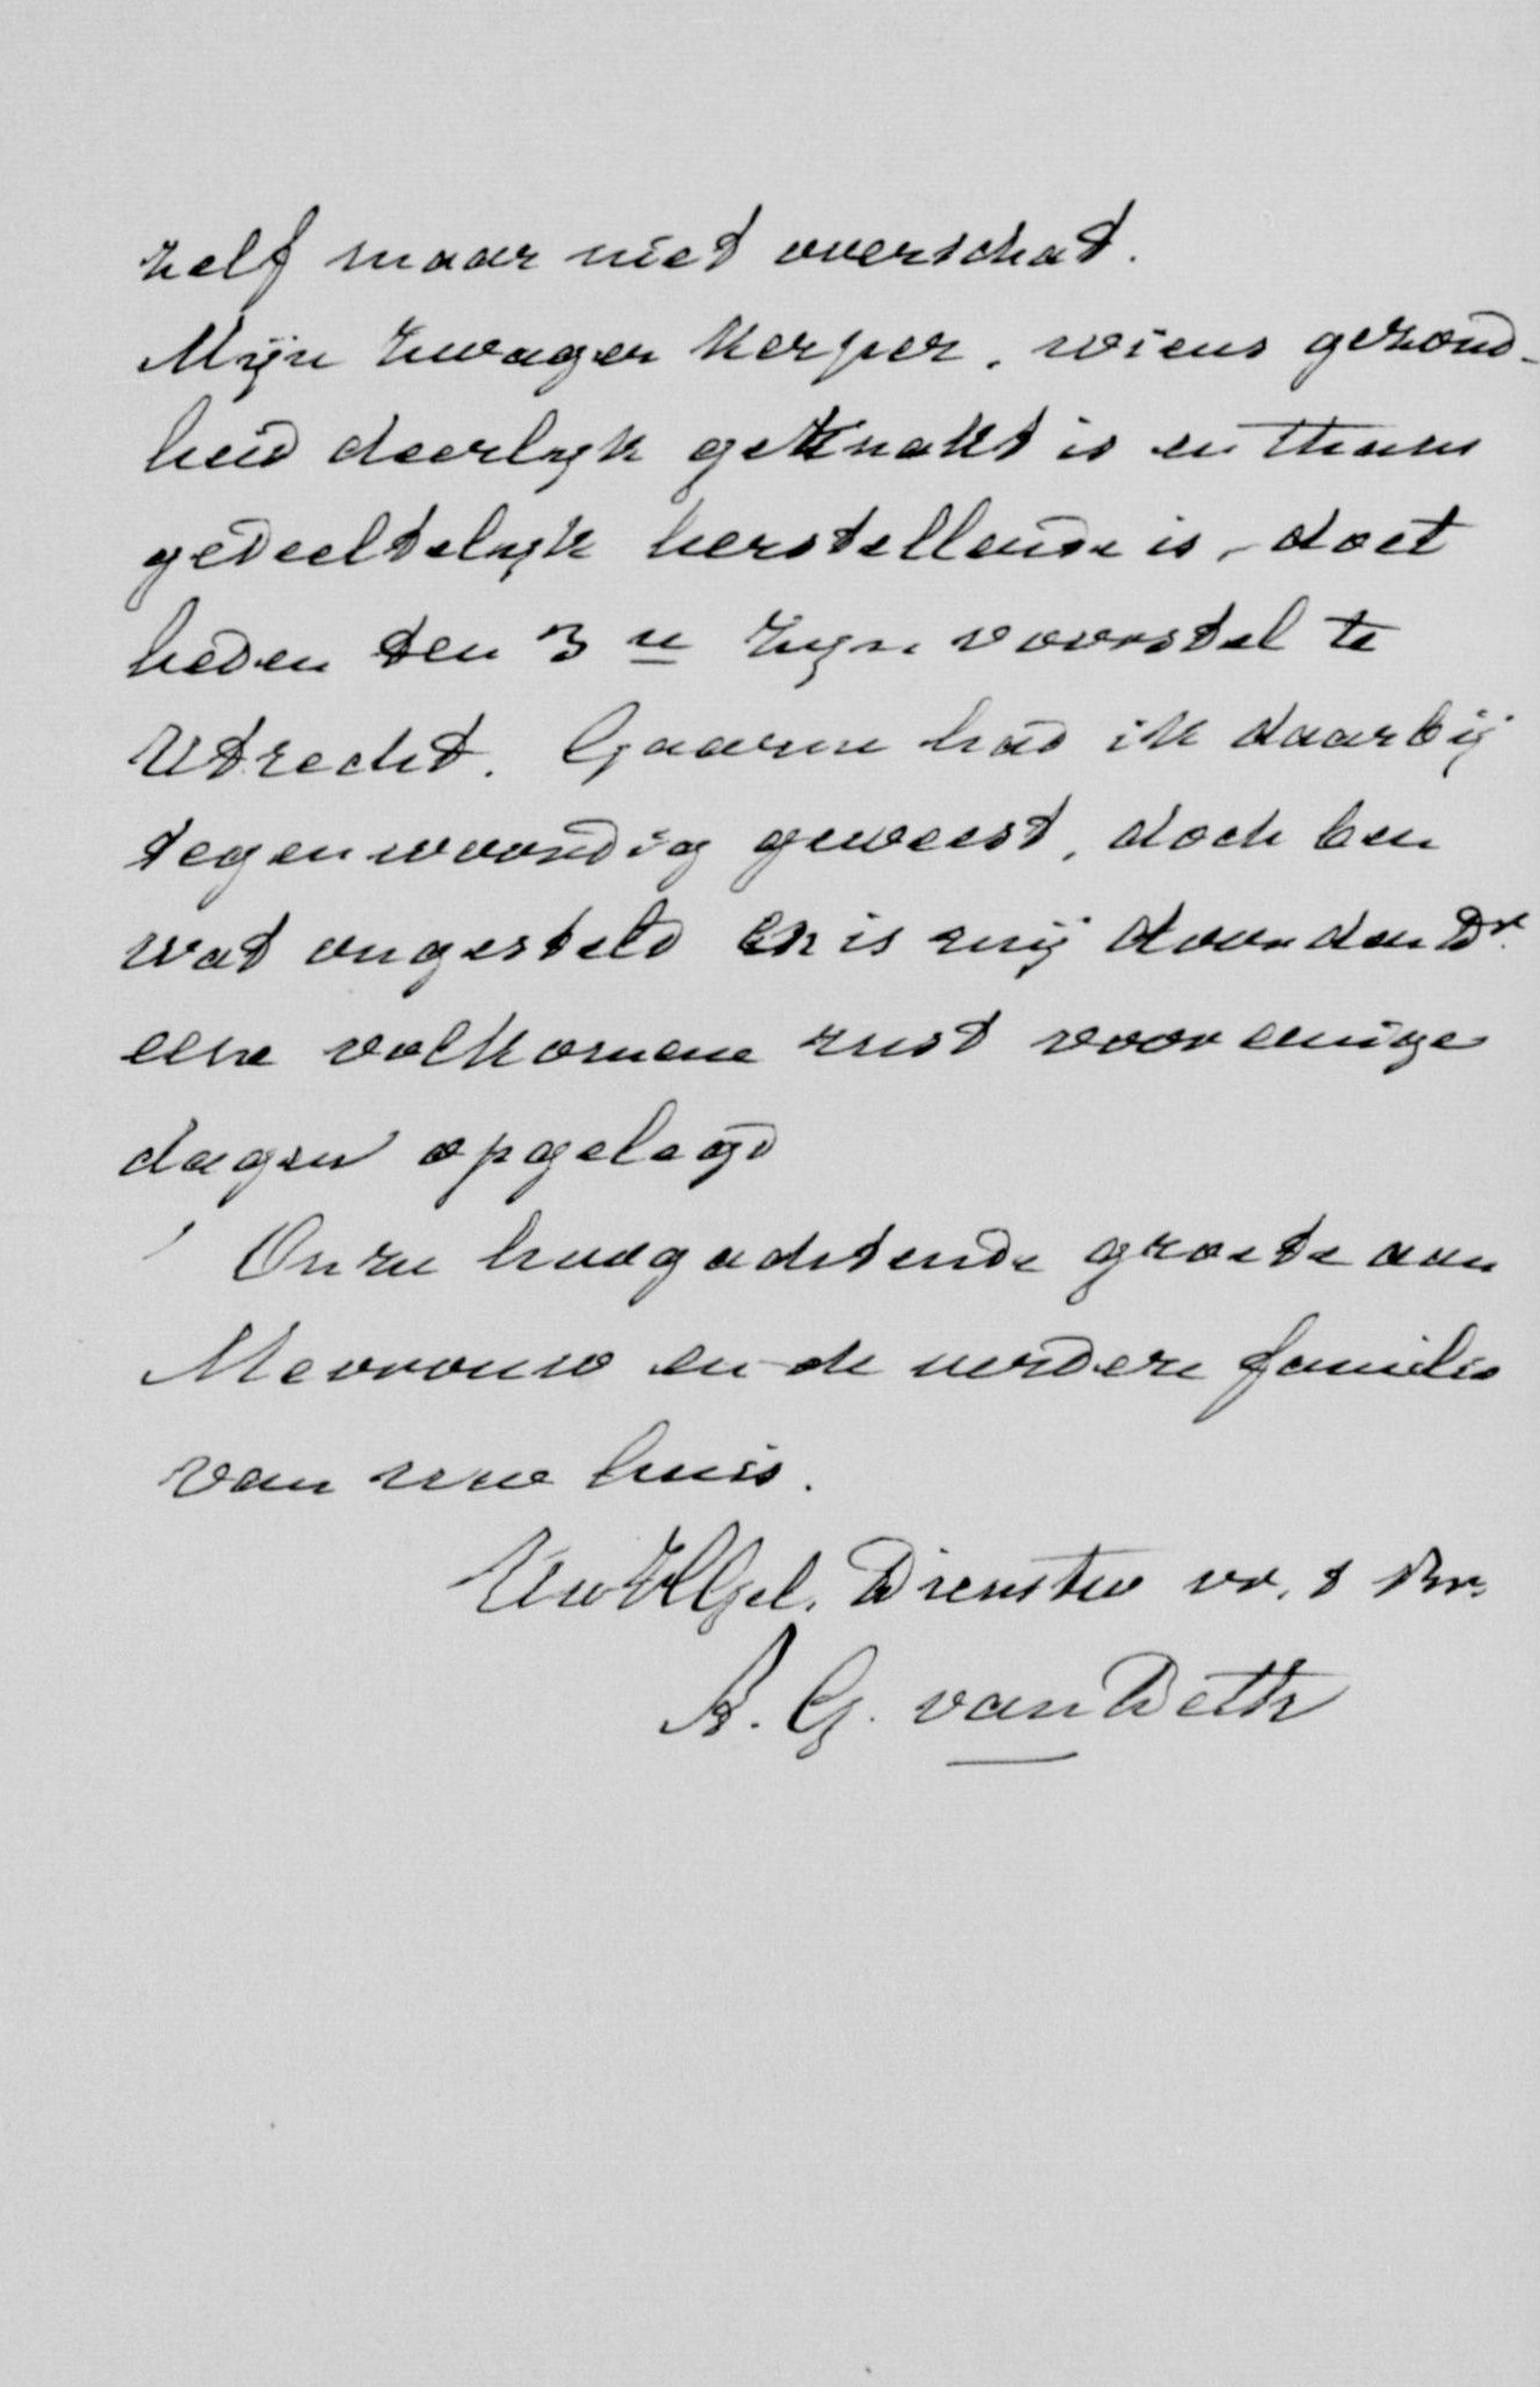 zelf maar niet overschat.
Mijn zwager Kerper, wiens gezond-
heid deerlijk geknakt is en thans
gedeeltelijk herstellende is, doet
heden den 3n zijn voorstel te
Utrecht. Gaarne had ik daarbij
tegenwoordig geweest, doch ben
wat ongesteld En is mij door den Dr.
eene volkomene rust voor eenige
dagen opgelegd
Onze hoogachtende groete aan
Mevrouw en de verdere familie
van uw huis.
Uw Dienstw vr. & Br.
A. G. van Deth